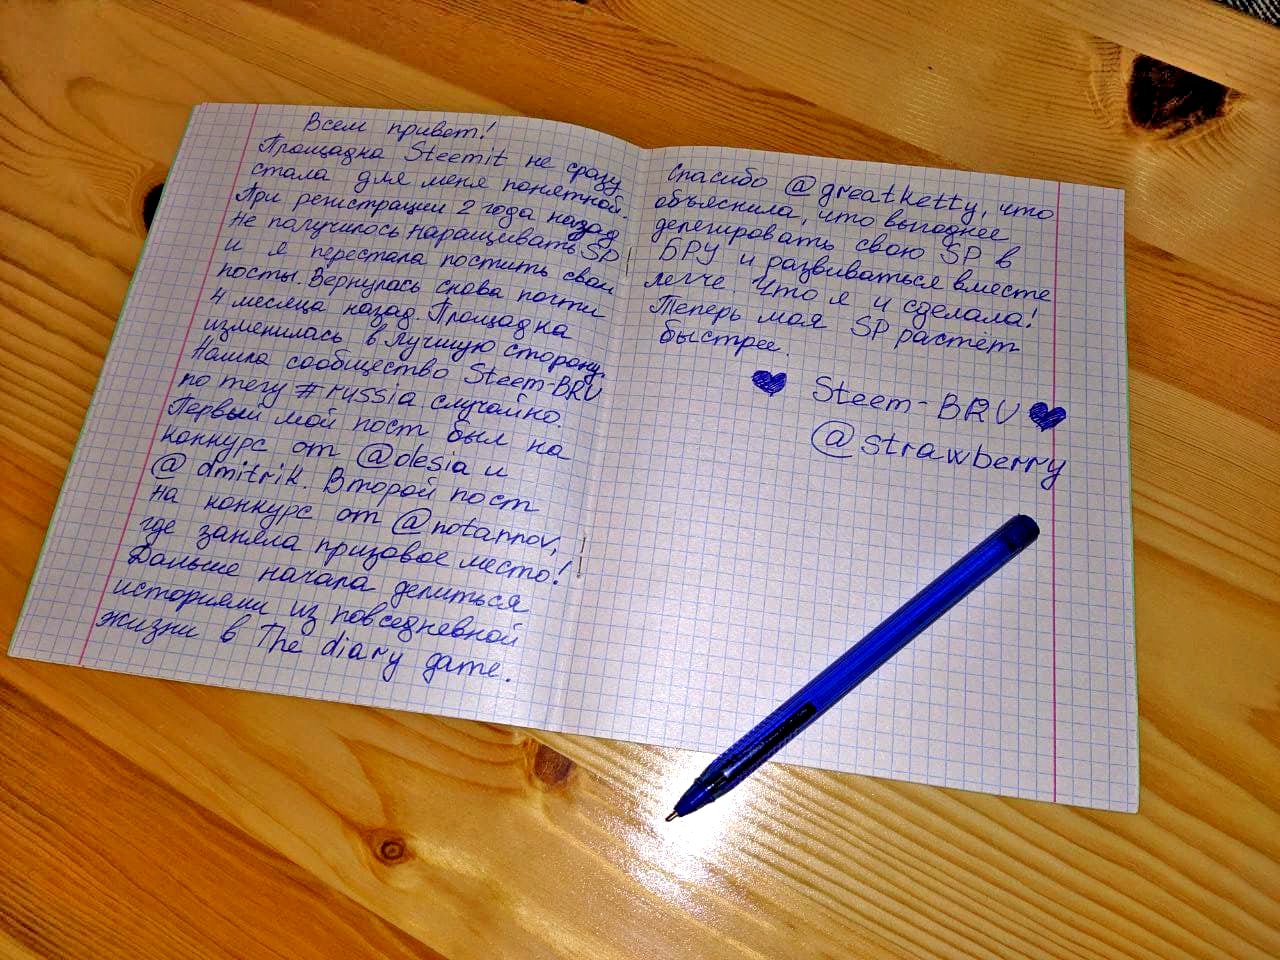 Всем привет!
Площадка Steemit не сразу
стала для меня понятной.
При регистрации 2 года назад
не получилось наращивать SP
и я перестала постить свои
посты. Вернулась снова почти
4 месяца назад. Площадка
изменилась в лучшую сторону.
Нашла сообщество Steem-BRU
по тегу #russia случайно.
Первый мой пост был на
конкурс от @olesia и
@dmitrik. Второй пост
на конкурс от @notannov,
где заняла призовое место!
Дальше начала делиться
историями из повседневной
жизни в The diary game.
Спасибо @greatketty, что
объяснила, что выгоднее
делегировать свою SP в
БРУ и развиваться вместе
легче. Что я и сделала!
Теперь моя SP растёт
быстрее.
Steem-BRU
@strawberry